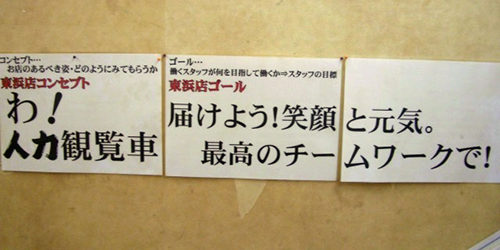 コンセプト…
お店のあるべき姿・どのようにみてもらうか
東浜店コンセプト
わ!
人力観覧車
ゴール…
働くスタッフが何を目指して働くか⇒スタッフの目標
東浜店ゴール
届けよう!笑顔と元気。
最高のチームワークで!